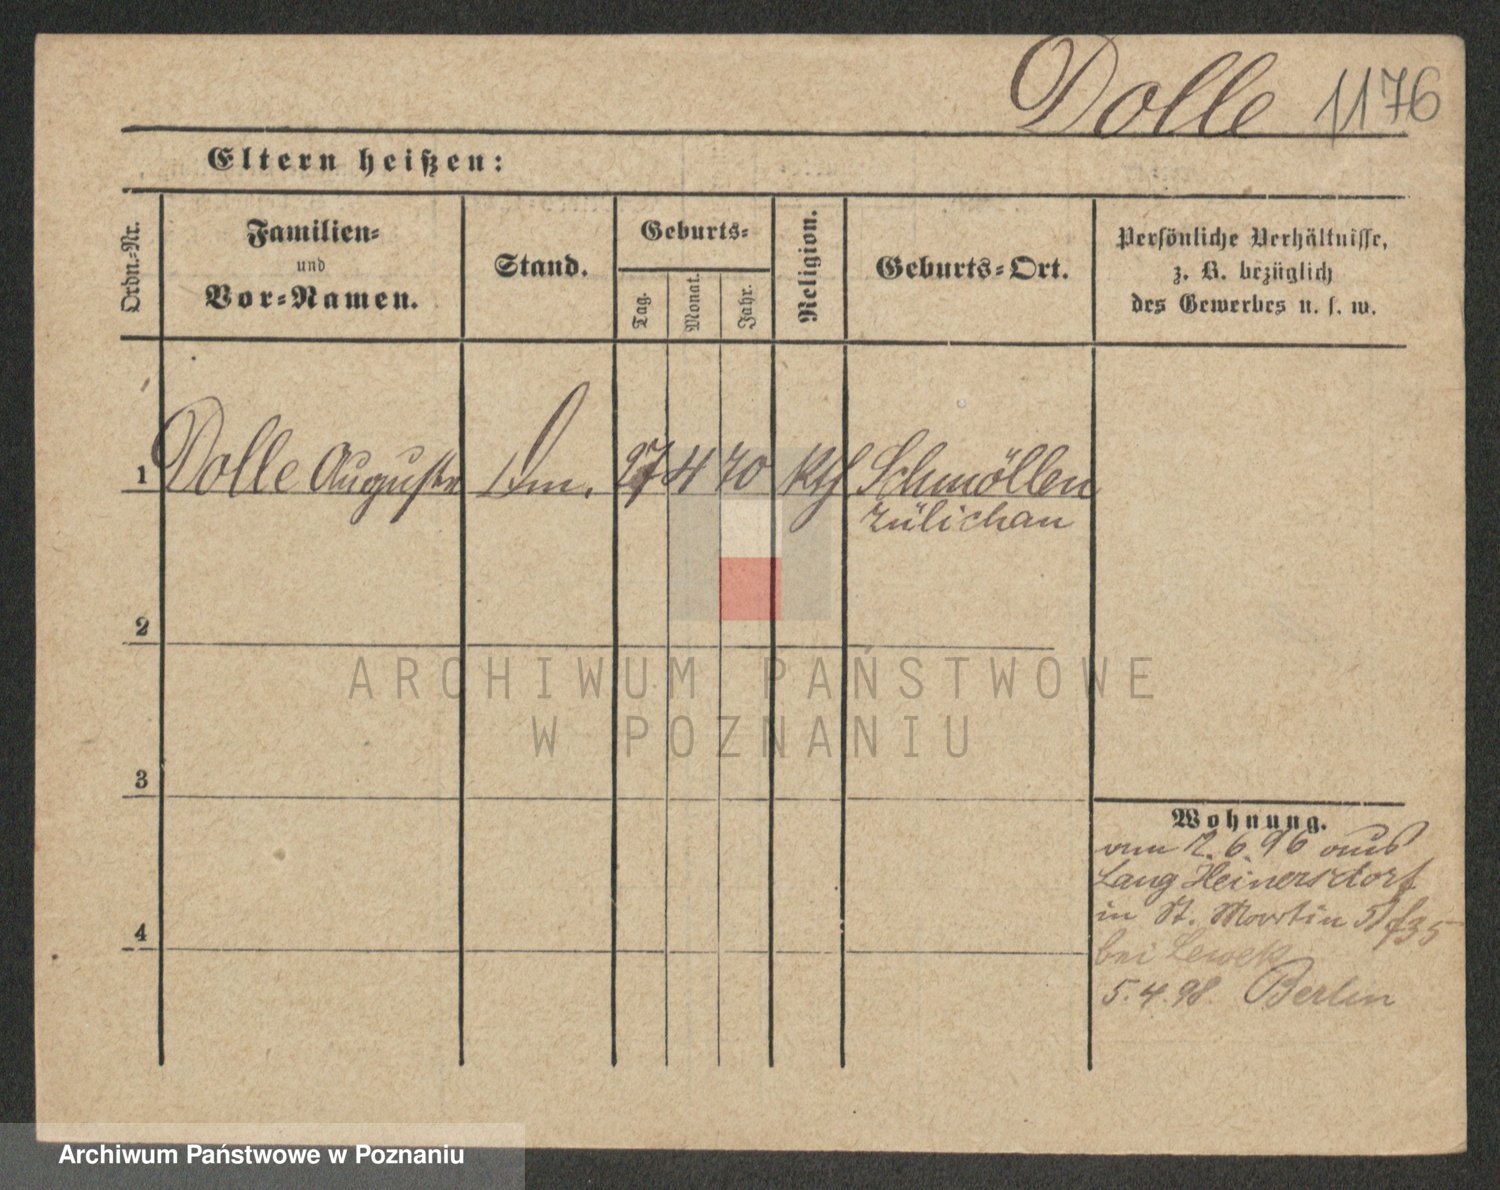 Dolle 1176
Eltern heißen:
Ordn.-Nr.
Familien-
und
Vor-Namen.
Stand.
Geburts-
Tag.
Monat.
Jahr.
Religion.
Geburts-Ort.
Persönliche Verhältnisse,
z. B. bezüglich
des Gewerbes u. s. w.
1 Dolle Auguste 27 4 70 kth Schmöllen
Züllichau
2
3
4
Wohnung.
vom 2.6.96 aus
Lang Heinersdorf
in St. Martin
bei Lewek
5.4.98. Berlin
ARCHIWUM PAŃSTWOWE
W POZNANIU
Archiwum Państwowe w Poznaniu